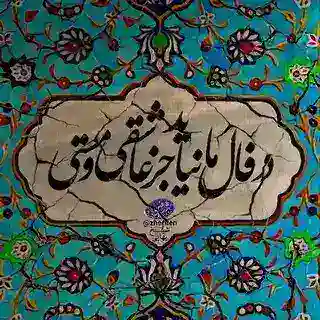 در فال ما نیاید جز عاشقی و مستی
@zherfien